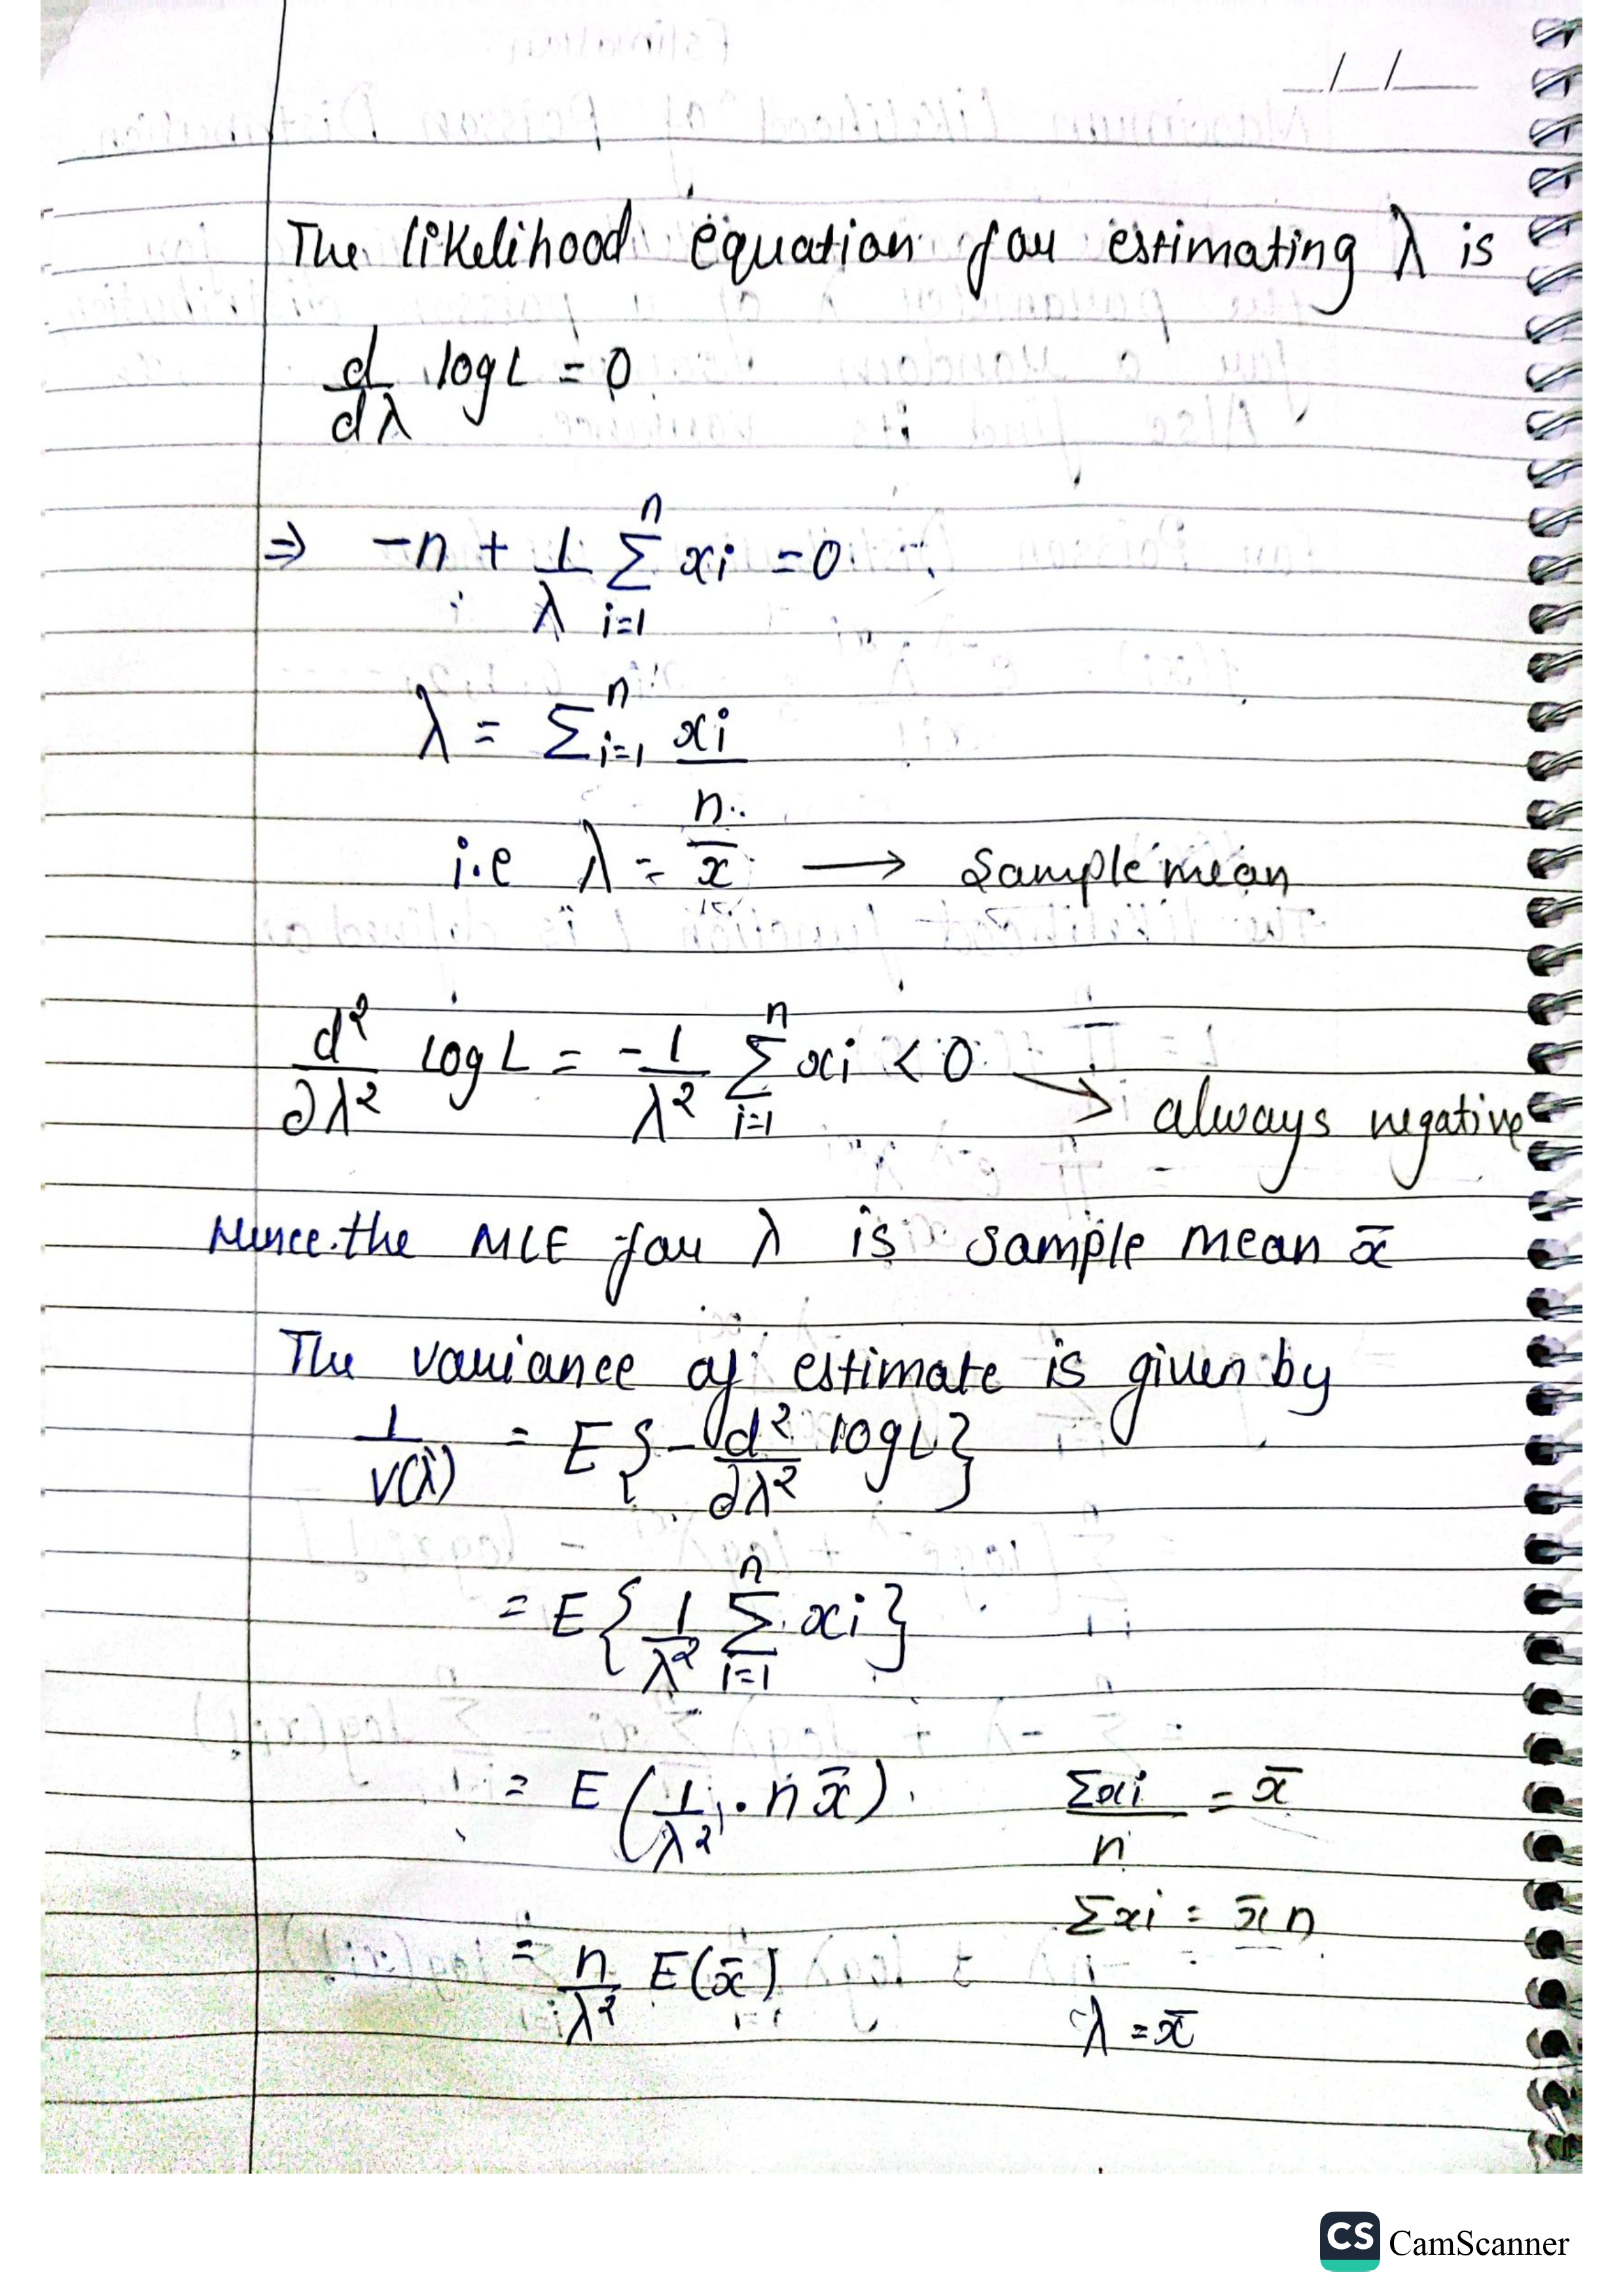 __/__/____
The likelihood equation for estimating λ is
d/dλ log L = 0
⇒ -n + 1/λ Σ_{i=1}^{n} xi = 0
λ = Σ_{i=1}^{n} xi/n
i.e λ = x̄ → sample mean
d²/∂λ² log L = -1/λ² Σ_{i=1}^{n} xi < 0 → always negative
Hence the MLE for λ is sample mean x̄
The variance of estimate is given by
1/V(λ) = E{-d²/∂λ² log L}
= E{1/λ² Σ_{i=1}^{n} xi}
= E(1/λ² · n x̄) Σxi/n = x̄
Σxi = x̄ n
= n/λ² E(x̄)
λ = x̄
CS CamScanner